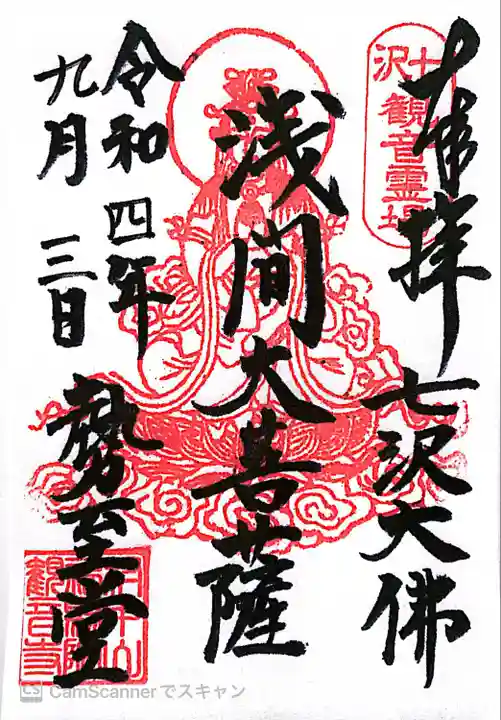 奉拝
七沢大佛
浅間大菩薩
令和四年
九月三日
勢至堂
七沢
観音霊場
観音寺
CamScannerでスキャン